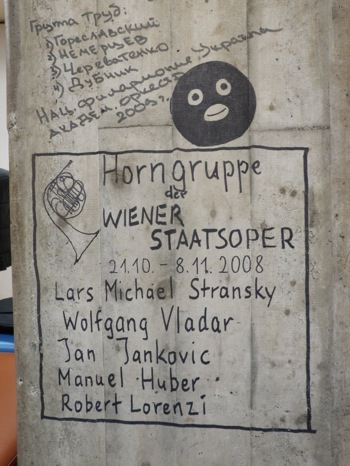 Группа Труб:
1) Гореславский
2) Немерцев
3) Череватенко
4) Дубник
Нац. филармония, Украина
академ. оркестр
2009 г.
Horngruppe
der
WIENER
STAATSOPER
21.10. - 8.11. 2008
Lars Michael Stransky
Wolfgang Vladar
Jan Jankovic
Manuel Huber
Robert Lorenzi